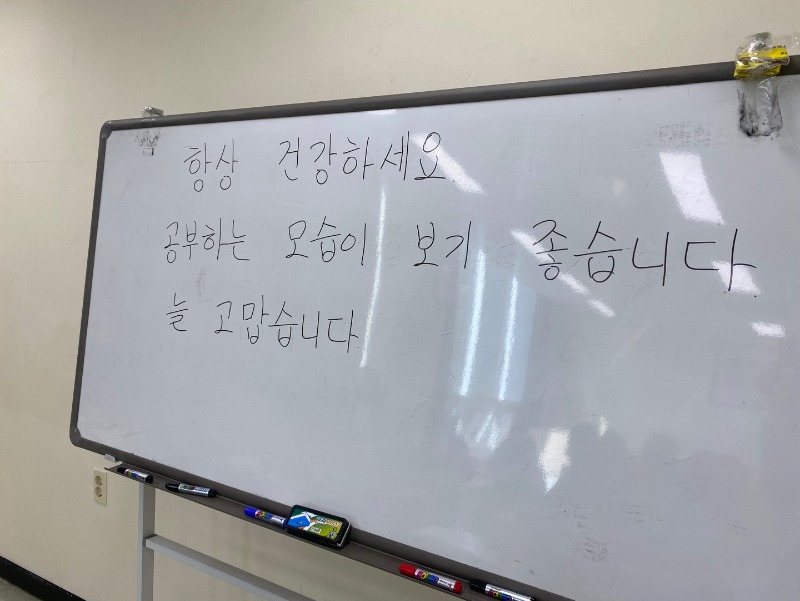 항상 건강하세요
공부하는 모습이 보기 좋습니다
늘 고맙습니다